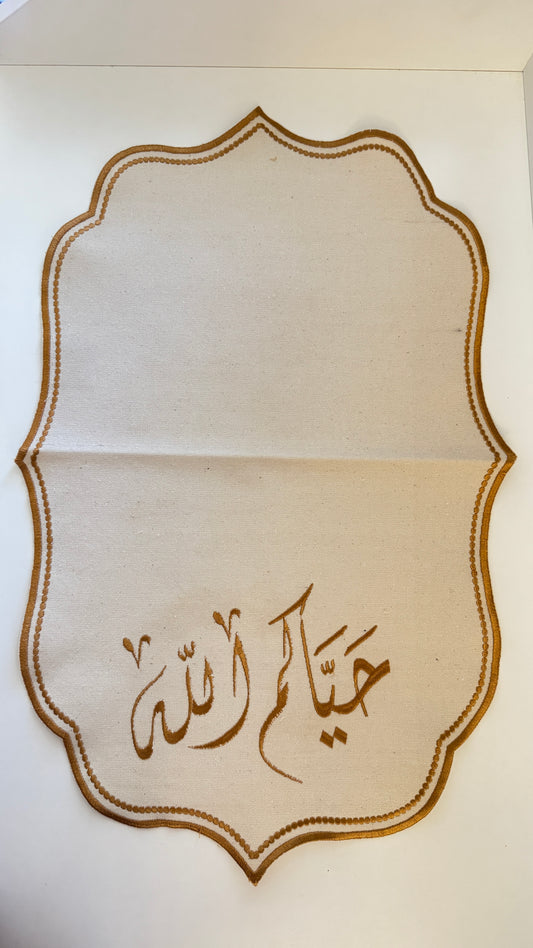 حَيَّاكم الله